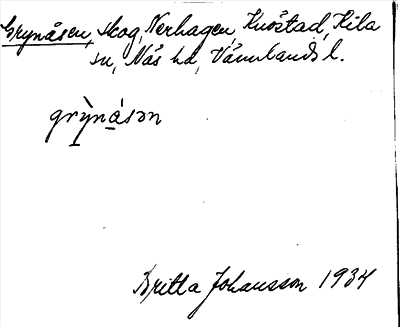 Grynåsen, skog, Nerhagen, Knöstad, Kila
sn, Näs hd, Värmlands l.
grỳnásən
Britta Johansson 1934